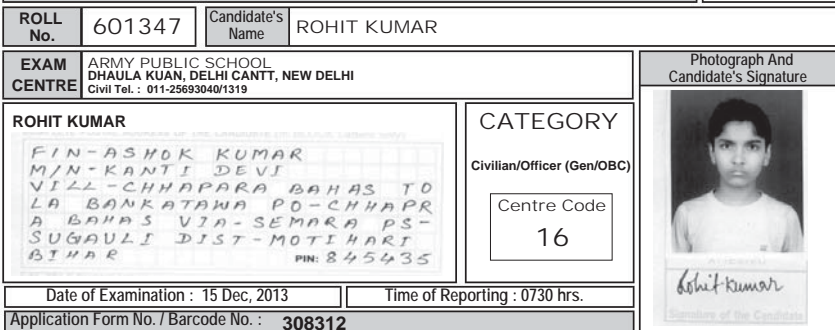 ROLL No. 601347 Candidate's Name ROHIT KUMAR
EXAM CENTRE
ARMY PUBLIC SCHOOL
DHAULA KUAN, DELHI CANTT, NEW DELHI
Civil Tel. : 011-25693040/1319
Photograph And
Candidate's Signature
ROHIT KUMAR
F/N-ASHOK KUMAR
M/N-KANTI DEVI
VILL-CHHAPARA BAHAS TO
LA BANKATAWA PO-CHHAPR
A BAHAS VIA-SEMARA PS-
SUGAULI DIST-MOTIHARI
BIHAR PIN: 845435
CATEGORY
Civilian/Officer (Gen/OBC)
Centre Code
16
Rohit Kumar
Signature of the Candidate
Date of Examination : 15 Dec, 2013 Time of Reporting : 0730 hrs.
Application Form No. / Barcode No. : 308312